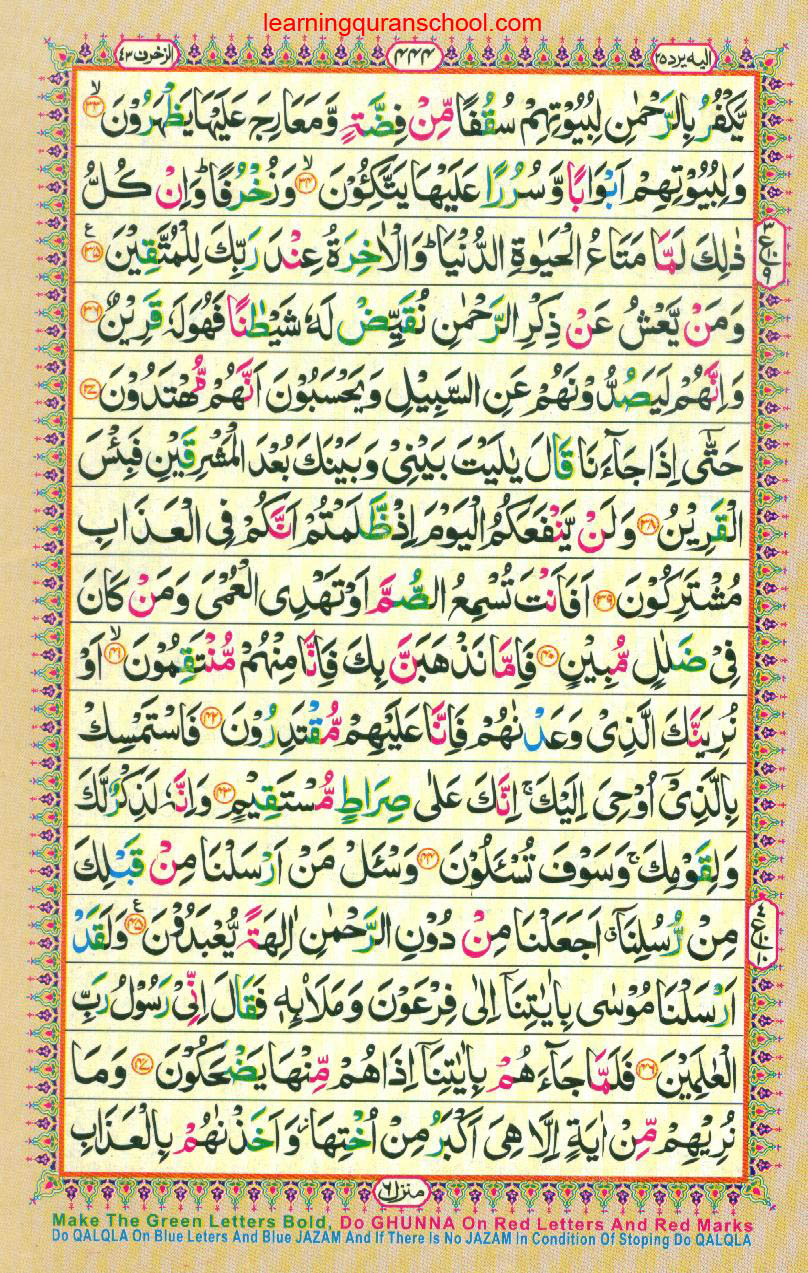 learningquranschool.com
الزخرف ٤٣
٤٤٤
الیه یرد ٢٥
یَّكْفُرُ بِالرَّحْمٰنِ لِبُیُوْتِهِمْ سُقُفًا مِّنْ فِضَّةٍ وَّمَعَارِجَ عَلَیْهَا یَظْهَرُوْنَ ۙ﴿٣٣﴾
وَلِبُیُوْتِهِمْ اَبْوَابًا وَّسُرُرًا عَلَیْهَا یَتَّكِـُٔوْنَ ۙ﴿٣٤﴾ وَزُخْرُفًا ؕ وَاِنْ كُلُّ
ذٰلِكَ لَمَّا مَتَاعُ الْحَیٰوةِ الدُّنْیَا ؕ وَالْاٰخِرَةُ عِنْدَ رَبِّكَ لِلْمُتَّقِیْنَ ﴿٣٥﴾ ع
وَمَنْ یَّعْشُ عَنْ ذِكْرِ الرَّحْمٰنِ نُقَیِّضْ لَهٗ شَیْطٰنًا فَهُوَ لَهٗ قَرِیْنٌ ﴿٣٦﴾
وَاِنَّهُمْ لَیَصُدُّوْنَهُمْ عَنِ السَّبِیْلِ وَیَحْسَبُوْنَ اَنَّهُمْ مُّهْتَدُوْنَ ﴿٣٧﴾
حَتّٰۤی اِذَا جَآءَنَا قَالَ یٰلَیْتَ بَیْنِیْ وَبَیْنَكَ بُعْدَ الْمَشْرِقَیْنِ فَبِئْسَ
الْقَرِیْنُ ﴿٣٨﴾ وَلَنْ یَّنْفَعَكُمُ الْیَوْمَ اِذْ ظَّلَمْتُمْ اَنَّكُمْ فِی الْعَذَابِ
مُشْتَرِكُوْنَ ﴿٣٩﴾ اَفَاَنْتَ تُسْمِعُ الصُّمَّ اَوْ تَهْدِی الْعُمْیَ وَمَنْ كَانَ
فِیْ ضَلٰلٍ مُّبِیْنٍ ﴿٤٠﴾ فَاِمَّا نَذْهَبَنَّ بِكَ فَاِنَّا مِنْهُمْ مُّنْتَقِمُوْنَ ۙ﴿٤١﴾ اَوْ
نُرِیَنَّكَ الَّذِیْ وَعَدْنٰهُمْ فَاِنَّا عَلَیْهِمْ مُّقْتَدِرُوْنَ ﴿٤٢﴾ فَاسْتَمْسِكْ
بِالَّذِیْۤ اُوْحِیَ اِلَیْكَ ۚ اِنَّكَ عَلٰی صِرَاطٍ مُّسْتَقِیْمٍ ﴿٤٣﴾ وَاِنَّهٗ لَذِكْرٌ لَّكَ
وَلِقَوْمِكَ ۚ وَسَوْفَ تُسْـَٔلُوْنَ ﴿٤٤﴾ وَسْـَٔلْ مَنْ اَرْسَلْنَا مِنْ قَبْلِكَ
مِنْ رُّسُلِنَاۤ اَجَعَلْنَا مِنْ دُوْنِ الرَّحْمٰنِ اٰلِهَةً یُّعْبَدُوْنَ ﴿٤٥﴾ ع وَلَقَدْ
اَرْسَلْنَا مُوْسٰی بِاٰیٰتِنَاۤ اِلٰی فِرْعَوْنَ وَمَلَا۟ىِٕهٖ فَقَالَ اِنِّیْ رَسُوْلُ رَبِّ
الْعٰلَمِیْنَ ﴿٤٦﴾ فَلَمَّا جَآءَهُمْ بِاٰیٰتِنَاۤ اِذَا هُمْ مِّنْهَا یَضْحَكُوْنَ ﴿٤٧﴾ وَمَا
نُرِیْهِمْ مِّنْ اٰیَةٍ اِلَّا هِیَ اَكْبَرُ مِنْ اُخْتِهَا ؗ وَاَخَذْنٰهُمْ بِالْعَذَابِ
منزل ٦
Make The Green Letters Bold, Do GHUNNA On Red Letters And Red Marks
Do QALQLA On Blue Leters And Blue JAZAM And If There Is No JAZAM In Condition Of Stoping Do QALQLA